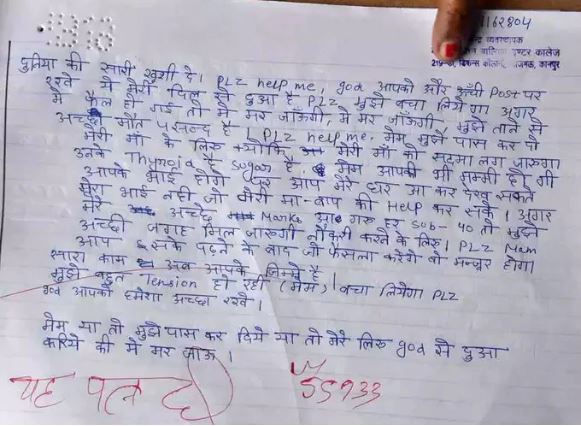 1162804
केन्द्र व्यवस्थापक
इण्टर कालेज
कानपुर
दुनिया की सारी खुशी दे। PLZ help me, god आपको और ऊँची Post पर
रखे ये मेरी दिल से दुआ है, PLZ मुझे बचा लियेगा अगर
मैं फैल हो गई तो मै मर जाऊँगी, मै मर जाऊँगी मुझे ताने से
अच्छा मौत पसन्द है। PLZ help me, मैम मुझे पास कर दो
मेरी माँ के लिए क्योकि मेरी माँ को सदमा लग जाएगा
उनके Thyroid है sugar है, मैम आपकी भी मम्मी होगी
आपके भाई होगे पर आप मेरे घर आ कर देख सकते
मेरा भाई नही जो मेरी मा-बाप की Help कर सके। अगर
मेरे अच्छे Marks आ गए हर sub - 40 तो मुझे
अच्छी जगह मिल जाएगी नौकरी करने के लिए। PLZ Mam
आप इसके पढ़ने के बाद जो फैसला करेगी वो मन्जूर होगा
सारा काम अब आपके जिम्मे है।
मुझे बहुत Tension हो रही (मैम) बचा लियेगा PLZ
god आपको हमेशा अच्छा रखे।
मैम या तो मुझे पास कर दिये या तो मेरे लिए god से दुआ
करिये की मै मर जाऊ।
55933